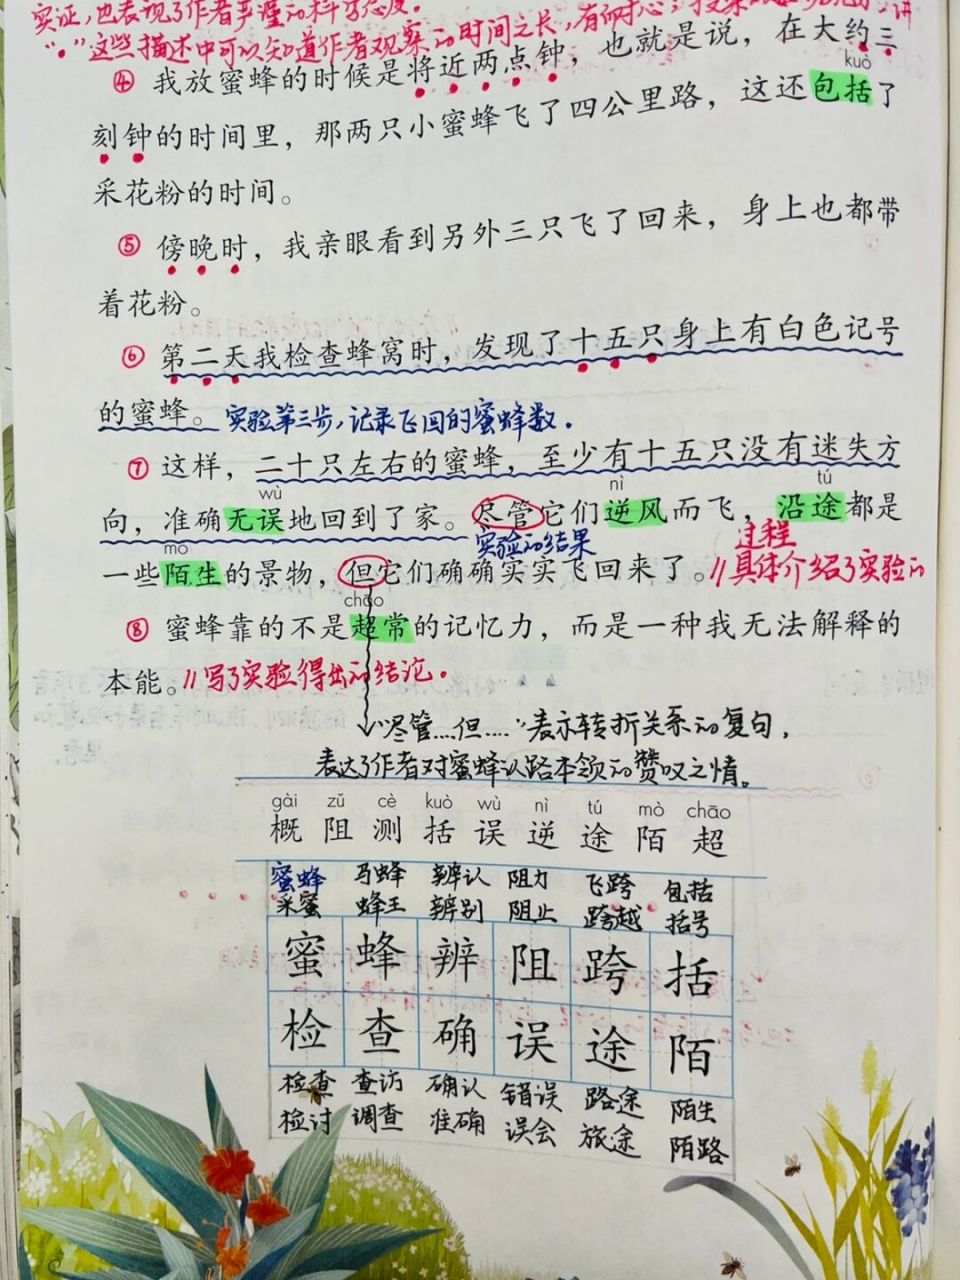 实证,也表现了作者严谨的科学态度。
"·"这些描述中可以知道作者观察的时间之长,有耐心;
④ 我放蜜蜂的时候是将近两点钟,也就是说,在大约三
kuò
刻钟的时间里,那两只小蜜蜂飞了四公里路,这还包括了
采花粉的时间。
⑤ 傍晚时,我亲眼看到另外三只飞了回来,身上也都带
着花粉。
⑥ 第二天我检查蜂窝时,发现了十五只身上有白色记号
的蜜蜂。实验第三步,记录飞回的蜜蜂数。
⑦ 这样,二十只左右的蜜蜂,至少有十五只没有迷失方
wù nì tú
向,准确无误地回到了家。尽管它们逆风而飞,沿途都是
实验的结果 过程
mò
一些陌生的景物,但它们确确实实飞回来了。//具体介绍了实验的
chāo
⑧ 蜜蜂靠的不是超常的记忆力,而是一种我无法解释的
本能。//写了实验得出的结论。
"尽管……但……"表示转折关系的复句,
表达了作者对蜜蜂认路本领的赞叹之情。
gài zǔ cè kuò wù nì tú mò chāo
概 阻 测 括 误 逆 途 陌 超
蜜蜂 马蜂 辨认 阻力 飞跨 包括
采蜜 蜂王 辨别 阻止 跨越 括号
蜜 蜂 辨 阻 跨 括
检 查 确 误 途 陌
检查 查访 确认 错误 路途 陌生
检讨 调查 准确 误会 旅途 陌路